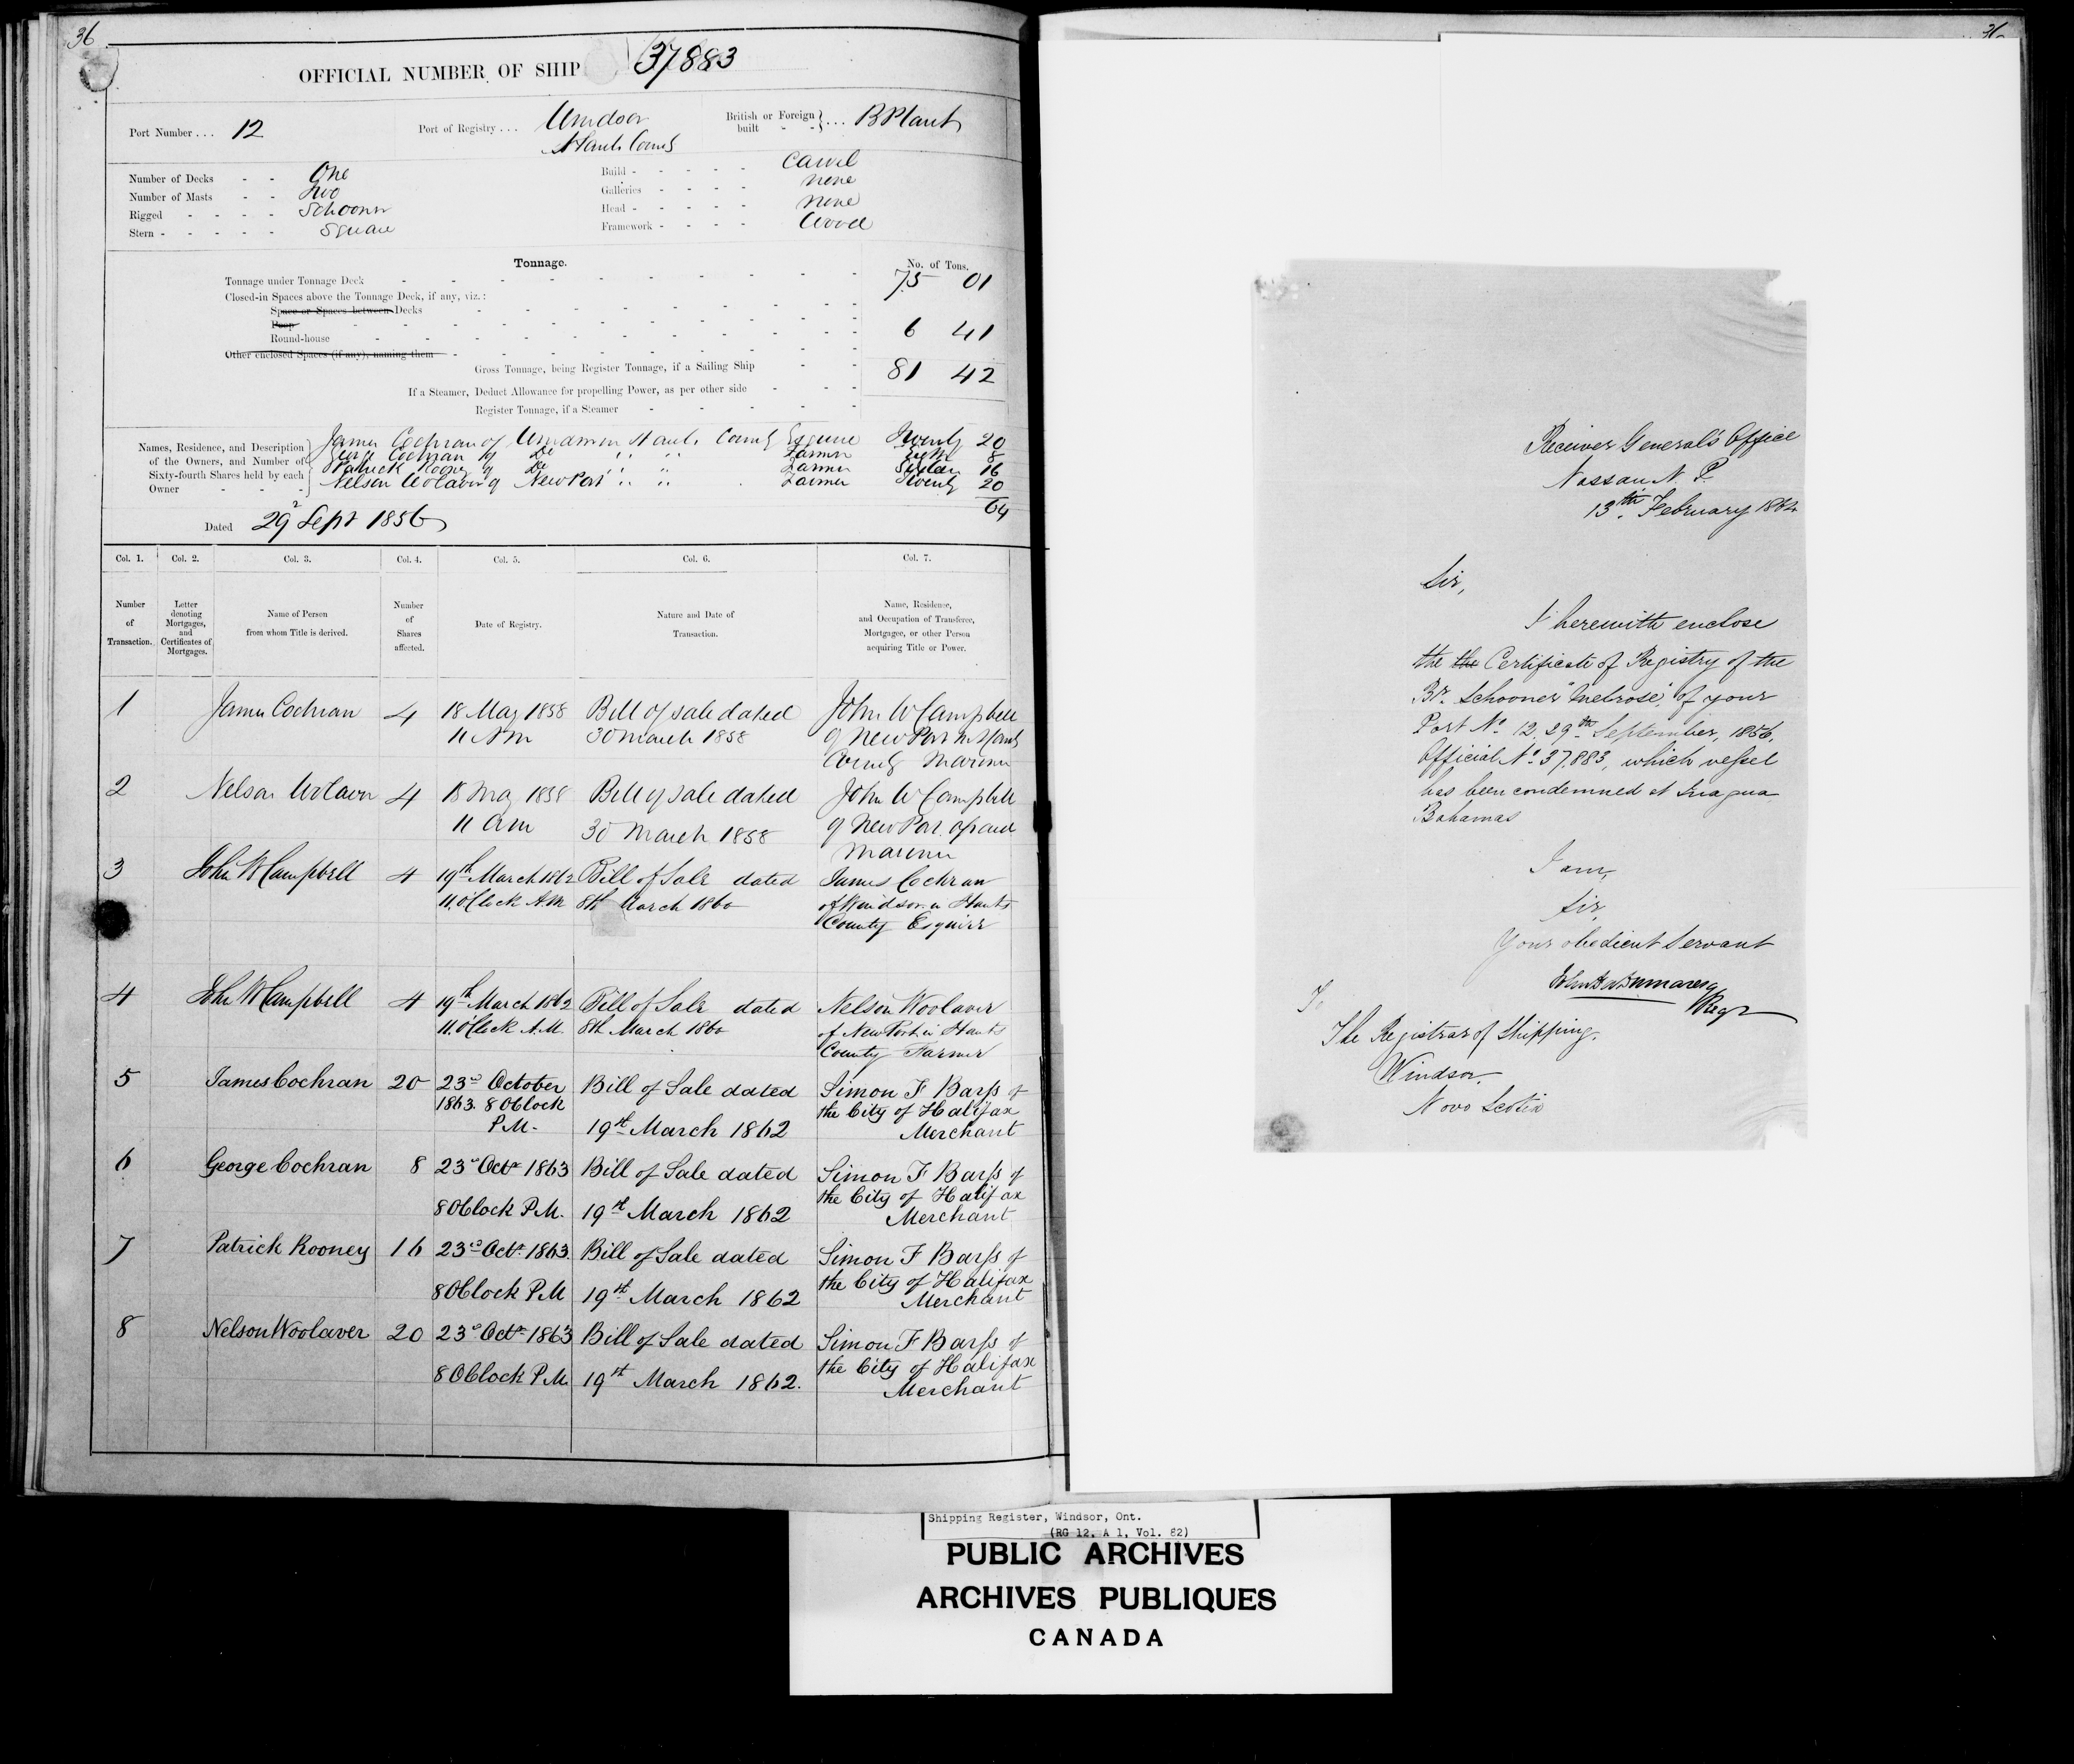 36
OFFICIAL NUMBER OF SHIP 37883
Port Number . . . 12
Port of Registry . . . Windsor
Hants County
British or Foreign built - - } . . . B Plant
Number of Decks - - One
Number of Masts - - Two
Rigged - - - - Schooner
Stern - - - - - Square
Build - - - - - Carvel
Galleries - - - - none
Head - - - - - none
Framework - - - - Wood
Tonnage.
No. of Tons.
Tonnage under Tonnage Deck 75 01
Closed-in Spaces above the Tonnage Deck, if any, viz.:
Space or Spaces between Decks
Poop
Round-house 6 41
Other enclosed Spaces (if any), naming them
Gross Tonnage, being Register Tonnage, if a Sailing Ship 81 42
If a Steamer, Deduct Allowance for propelling Power, as per other side
Register Tonnage, if a Steamer
Names, Residence, and Description of the Owners, and Number of Sixty-fourth Shares held by each Owner
James Cochran of Windsor in Hants County Esquire Twenty 20
George Cochran of Do " " Farmer Eight 8
Patrick Rooney of Do " " Farmer Sixteen 16
Nelson Wolaver of NewPort " " Farmer Twenty 20
64
Dated 29 Sept 1856
Col. 1. Col. 2. Col. 3. Col. 4. Col. 5. Col. 6. Col. 7.
Number of Transaction.
Letter denoting Mortgages, and Certificates of Mortgages.
Name of Person from whom Title is derived.
Number of Shares affected.
Date of Registry.
Nature and Date of Transaction.
Name, Residence, and Occupation of Transferee, Mortgagee, or other Person acquiring Title or Power.
1 James Cochran 4 18 May 1858 Bill of sale dated John W Campbell
11 AM 30 march 1858 of NewPort in Hants
County Marinner
2 Nelson Wolaver 4 18 May 1858 Bill of sale dated John W Campbell
11 am 30 March 1858 of NewPort aforesaid
Marinner
3 John W Campbell 4 19th March 1862 Bill of Sale dated James Cochran
11, O'Clock A.M 8th March 1860 of Windsor in Hants
County Esquire
4 John W Campbell 4 19th March 1862 Bill of Sale dated Nelson Woolaver
11, O'Clock A.M. 8th March 1860 of NewPort in Hants
County Farmer
5 James Cochran 20 23rd October Bill of Sale dated Simon F Barss of
1863. 8 OClock the City of Halifax
P.M- 19th March 1862 Merchant
6 George Cochran 8 23rd Octr 1863 Bill of Sale dated Simon F Barss of
the City of Halifax
8 OClock P.M. 19th March 1862 Merchant
7 Patrick Rooney 16 23rd Octr 1863. Bill of Sale dated Simon F Barss of
the City of Halifax
8 OClock P.M 19th March 1862 Merchant
8 Nelson Woolaver 20 23rd Octr 1863 Bill of Sale dated Simon F Barss of
the City of Halifax
8 OClock P.M. 19th March 1862. Merchant
36
Receiver General's Office
Nassau N. P.
13th February 1864
Sir,
I herewith enclose
the the Certificate of Registry of the
Br. Schooner "Melrose", of your
Port No. 12. 29th September, 1856,
Official No. 37,883, which vessel
has been condemned at Inagua
Bahamas
I am,
Sir,
Your obedient Servant
Regr
To
The Registrar of Shipping.
Windsor.
Nova Scotia
Shipping Register, Windsor, Ont.
(RG 12, A 1, Vol. 82)
PUBLIC ARCHIVES
ARCHIVES PUBLIQUES
CANADA